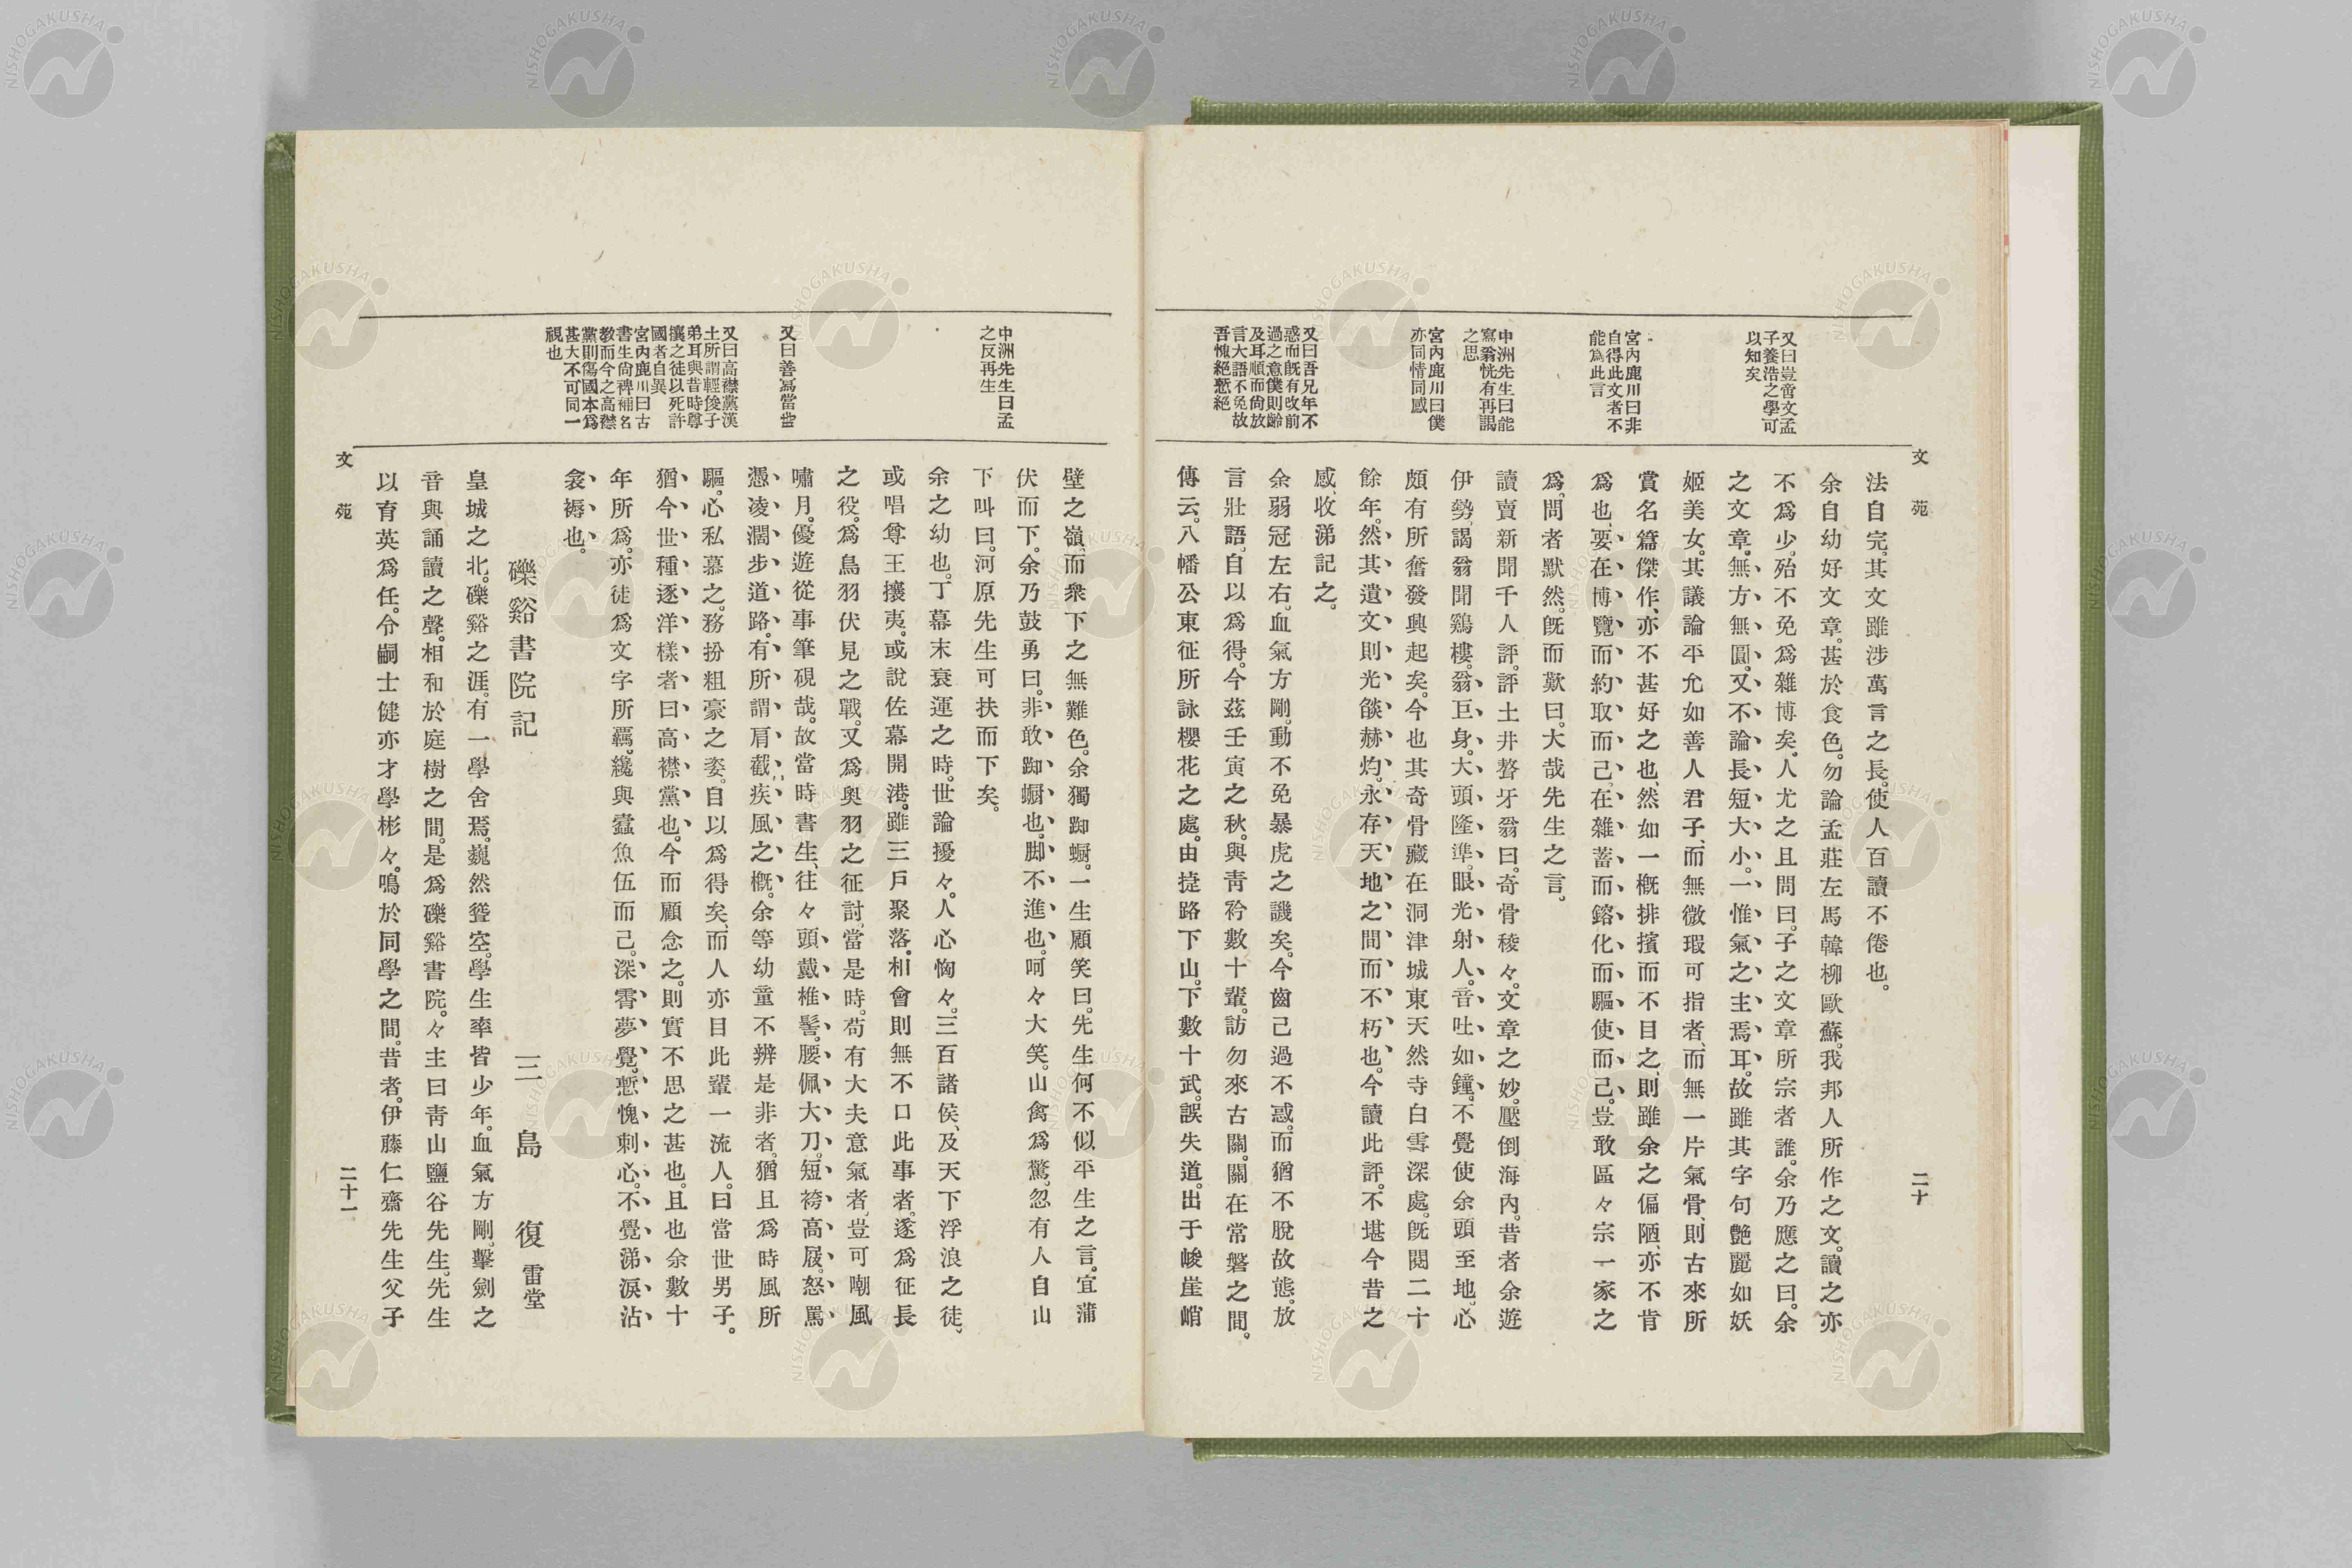 文苑
二十
又曰豈啻文孟
子養浩之學可
以知矣
宮內鹿川曰非
自得此文者不
能爲此言
中洲先生曰能
寫翁恍有再謁
之思
宮內鹿川曰僕
亦同情同感
又曰吾兄年不
惑而旣有改前
過之意僕則齡
及耳順而尙放
言大語不免故
吾愧絕慙絕
法自完、其文雖涉萬言之長。使人百讀不倦也。
余自幼好文章。甚於食色。勿論孟莊左馬韓柳歐蘇。我邦人所作之文。讀之亦
不爲少。殆不免爲雜博矣。人尤之且問曰。子之文章所宗者誰。余乃應之曰。余
之文章。無方無圓。又不論長短大小。一惟氣之主焉耳。故雖其字句艷麗如妖
姬美女。其議論平允如善人君子、而無微瑕可指者、而無一片氣骨、則古來所
賞名篇傑作、亦不甚好之也、然如一槪排擯而不目之、則雖余之偏陋、亦不肯
爲也、要在博覽而約取而己。在雜蓄而鎔化而驅使而己。豈敢區々宗一家之
爲。問者默然。旣而歎曰。大哉先生之言。
讀賣新聞千人評。評土井聱牙翁曰。奇骨稜々。文章之妙。壓倒海內。昔者余遊
伊勢、謁翁聞鷄樓。翁巨身。大頭隆準。眼光射人。音吐如鐘。不覺使余頭至地。心
頗有所奮發興起矣。今也其奇骨藏在洞津城東天然寺白雪深處。旣閱二十
餘年。然其遺文則光燄赫灼。永存天地之間而不朽也。今讀此評。不堪今昔之
感、收涕記之。
余弱冠左右。血氣方剛。動不免暴虎之譏矣。今齒己過不惑。而猶不脫故態。放
言壯語、自以爲得。今茲壬寅之秋。與靑衿數十輩。訪勿來古關。關在常磐之間。
傳云。八幡公東征所詠櫻花之處。由捷路下山。下數十武。誤失道。出于峻崖峭
中洲先生曰孟
之反再生
又曰善寫當世
又曰高襟黨漢
土所謂輕俊子
弟耳與昔時尊
攘之徒以死許
國者自異
宮內鹿川曰古
書生尙裨補名
敎而今之高襟
黨則傷國本爲
甚大不可同一
視也
壁之嶺。而衆下之無難色。余獨踟蹰。一生顧笑曰。先生何不似平生之言。宜蒲
伏而下。余乃鼓勇曰。非敢踟蹰也。脚不進也。呵々大笑。山禽爲驚。忽有人自山
下叫曰。河原先生可扶而下矣。
余之幼也。丁幕末衰運之時。世論擾々。人心恟々。三百諸侯、及天下浮浪之徒、
或唱尊王攘夷。或說佐幕開港。雖三戶聚落。相會則無不口此事者。遂爲征長
之役。爲鳥羽伏見之戰。又爲奧羽之征討、當是時。苟有大夫意氣者、豈可嘲風
嘯月。優遊從事筆硯哉。故當時書生、往々頭戴椎髻。腰佩大刀。短袴高屐。怒罵
憑凌濶步道路。有所謂肩截疾風之槪。余等幼童不辨是非者。猶且爲時風所
驅。心私慕之。務扮粗豪之姿。自以爲得矣、而人亦目此輩一流人。曰當世男子。
猶今世種逐洋樣者曰高襟黨也。今而顧念之。則實不思之甚也。且也余數十
年所爲。亦徒爲文字所羈。纔與蠹魚伍而己。深霄夢覺。慙愧刺心。不覺涕淚沾
衾褥也。
礫谿書院記
三島復雷堂
皇城之北。礫谿之涯。有一學舍焉。巍然聳空。學生率皆少年。血氣方剛。擊劍之
音與誦讀之聲。相和於庭樹之間。是爲礫谿書院。々主曰靑山鹽谷先生。先生
以育英爲任。令嗣士健亦才學彬々。鳴於同學之間。昔者。伊藤仁齋先生父子
文苑
二十一